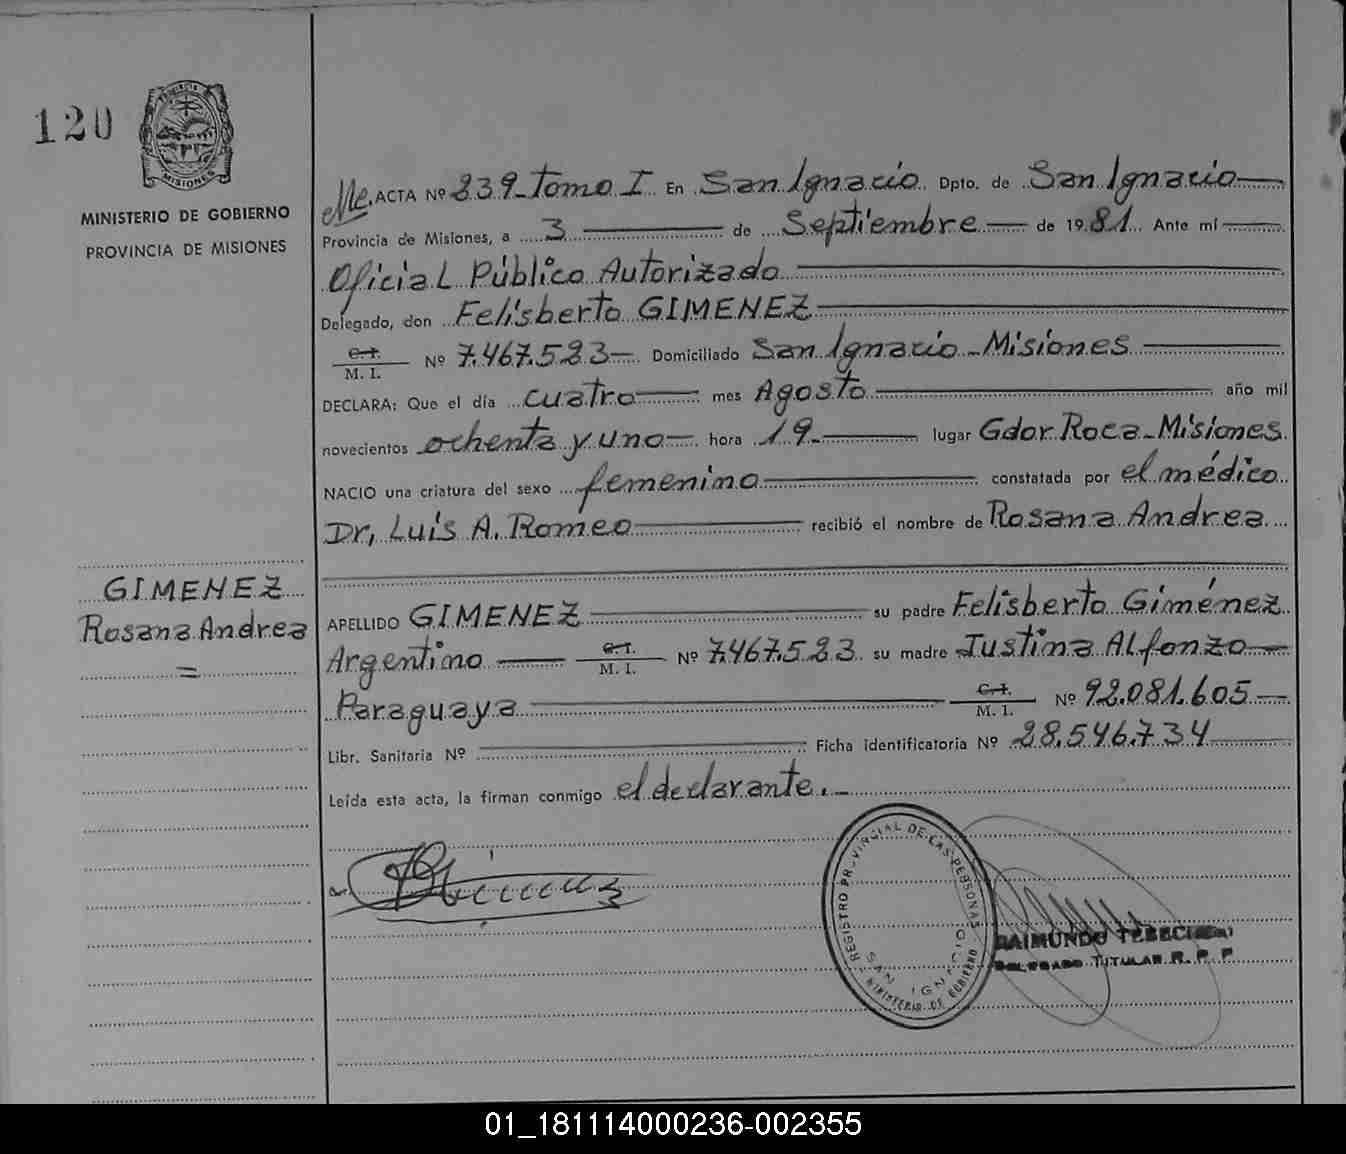 120
MISIONES
MINISTERIO DE GOBIERNO
PROVINCIA DE MISIONES
ACTA Nº 239 Tomo I En San Ignacio Dpto. de San Ignacio
Provincia de Misiones, a 3 de Septiembre de 1981 Ante mí
Oficial Público Autorizado
Delegado, don Felisberto GIMENEZ
C. I.
M. I. Nº 7.467.523 Domiciliado San Ignacio - Misiones
DECLARA: Que el día cuatro mes Agosto año mil
novecientos ochenta y uno hora 19 lugar Gdor Roca - Misiones
NACIO una criatura del sexo femenino constatada por el médico
Dr, Luis A. Romeo recibió el nombre de Rosana Andrea
GIMENEZ
Rosana Andrea
=
APELLIDO GIMENEZ su padre Felisberto Giménez
Argentino C. I. M. I. Nº 7.467.523 su madre Justina Alfonzo
Paraguaya C. I. M. I. Nº 92.081.605
Libr. Sanitaria Nº Ficha identificatoria Nº 28.546.734
Leída esta acta, la firman conmigo el declarante.-
REGISTRO PROVINCIAL DE LAS PERSONAS
SAN IGNACIO
MINISTERIO DE GOBIERNO
RAIMUNDO
DELEGADO TITULAR R. P. P.
01_181114000236-002355